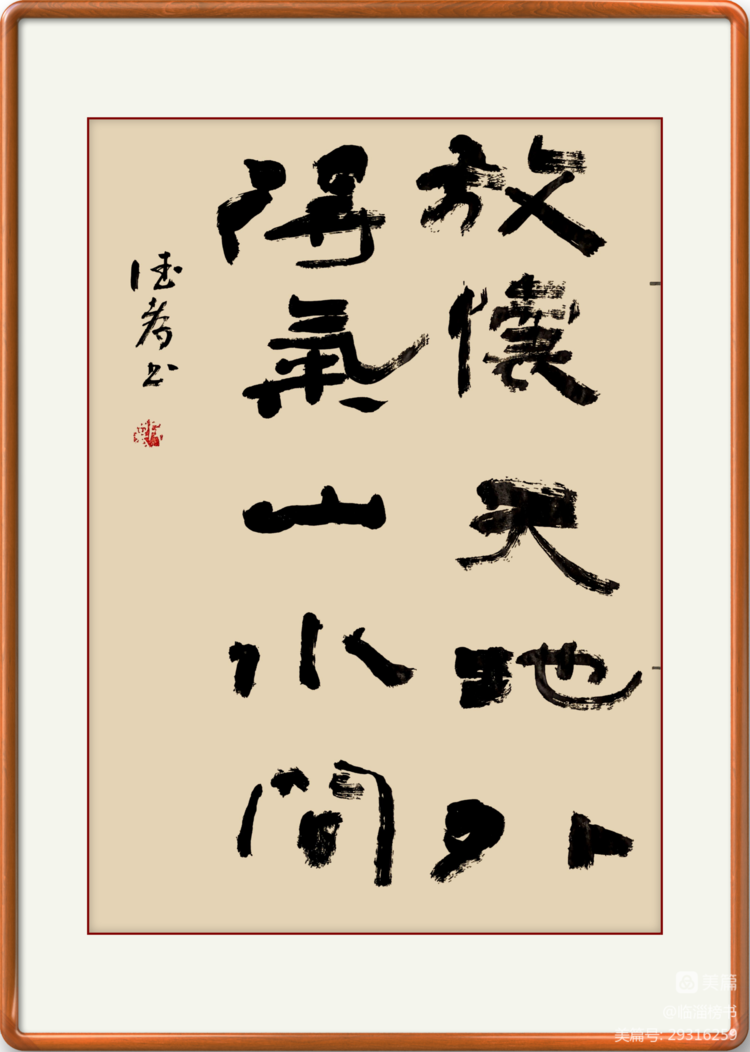 放懷天地外
得氣山水間
美篇
美篇号: 29316259